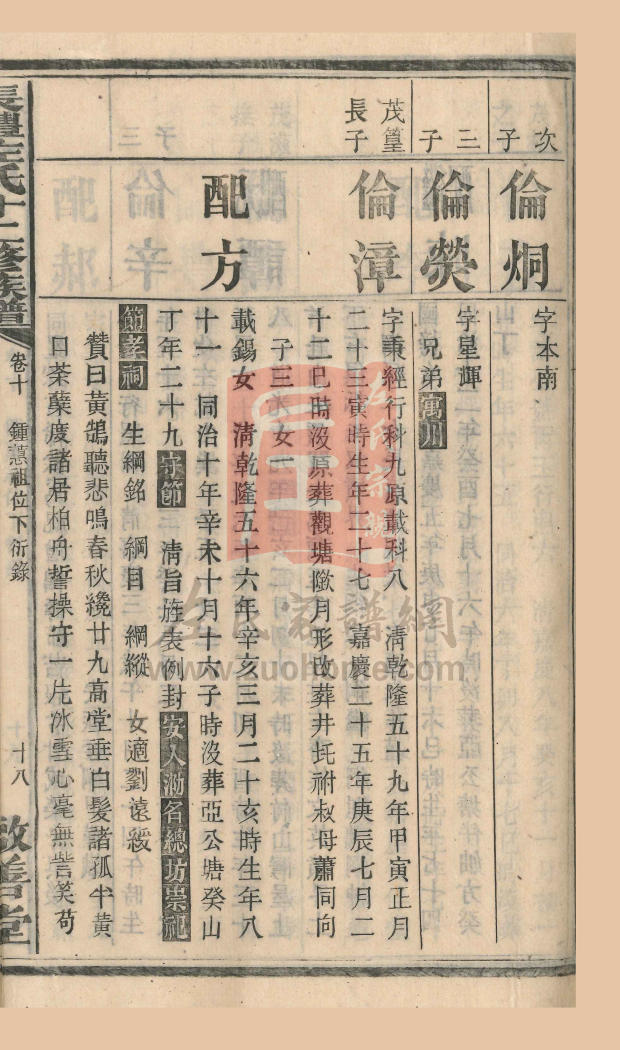 次子
倫炯
字本南
三子
倫熒
字星輝
兄弟寓川
茂篁長子
倫漳
字秉經行科九原載科八 清乾隆五十九年甲寅正月
二十三寅時生年二十七 嘉慶二十五年庚辰七月二
十二巳時沒原葬觀塘墩月形改葬井坵祔叔母蕭同向
配方
子三 女一
載錫女 清乾隆五十六年辛亥三月二十亥時生年八
十一 同治十年辛未十月十六子時沒葬亞公塘癸山
丁年二十九守節 清旨旌表例封安人泐名總坊崇祀
節孝祠 生綱銘 綱目 綱縱 女適劉遠綬
贊曰黃鵠聽悲鳴春秋纔廿九高堂垂白髮諸孤半黃
口荼蘗度諸居柏舟誓操守一片冰雪心毫無訾笑苟
長澧左氏十二修族譜
卷十 鍾蕙祖位下衍錄
十八 敦善堂
左氏家譜網
www.zuohome.com